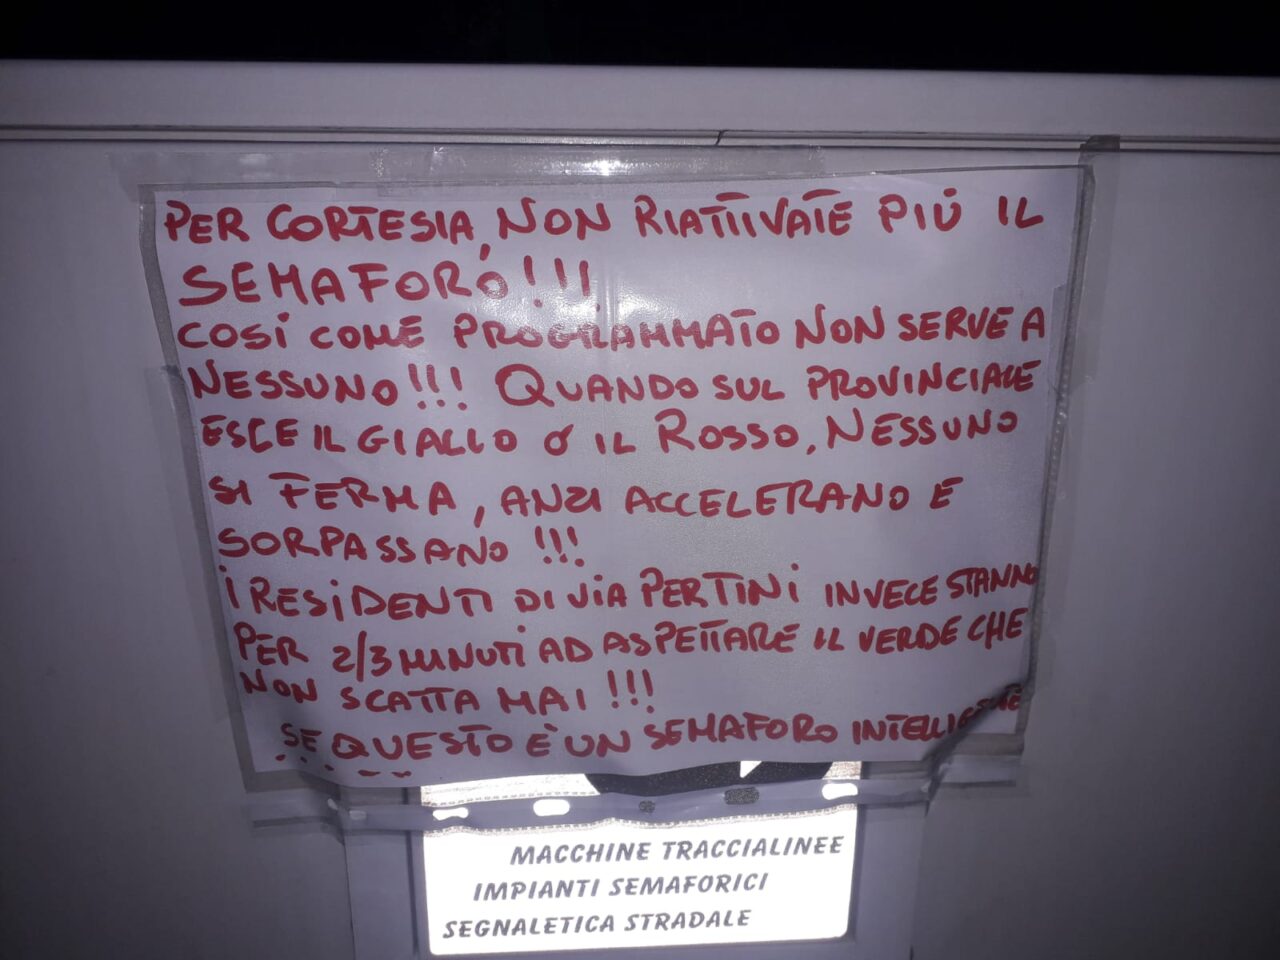 PER CORTESIA, NON RIATTIVATE PIÙ IL
SEMAFORO!!!
COSÌ COME PROGRAMMATO NON SERVE A
NESSUNO!!! QUANDO SUL PROVINCIALE
ESCE IL GIALLO O IL ROSSO, NESSUNO
SI FERMA, ANZI ACCELERANO E
SORPASSANO!!!
I RESIDENTI DI VIA PERTINI INVECE STANNO
PER 2/3 MINUTI AD ASPETTARE IL VERDE CHE
NON SCATTA MAI!!!
SE QUESTO È UN SEMAFORO INTELLIGENTE
......
MACCHINE TRACCIALINEE
IMPIANTI SEMAFORICI
SEGNALETICA STRADALE